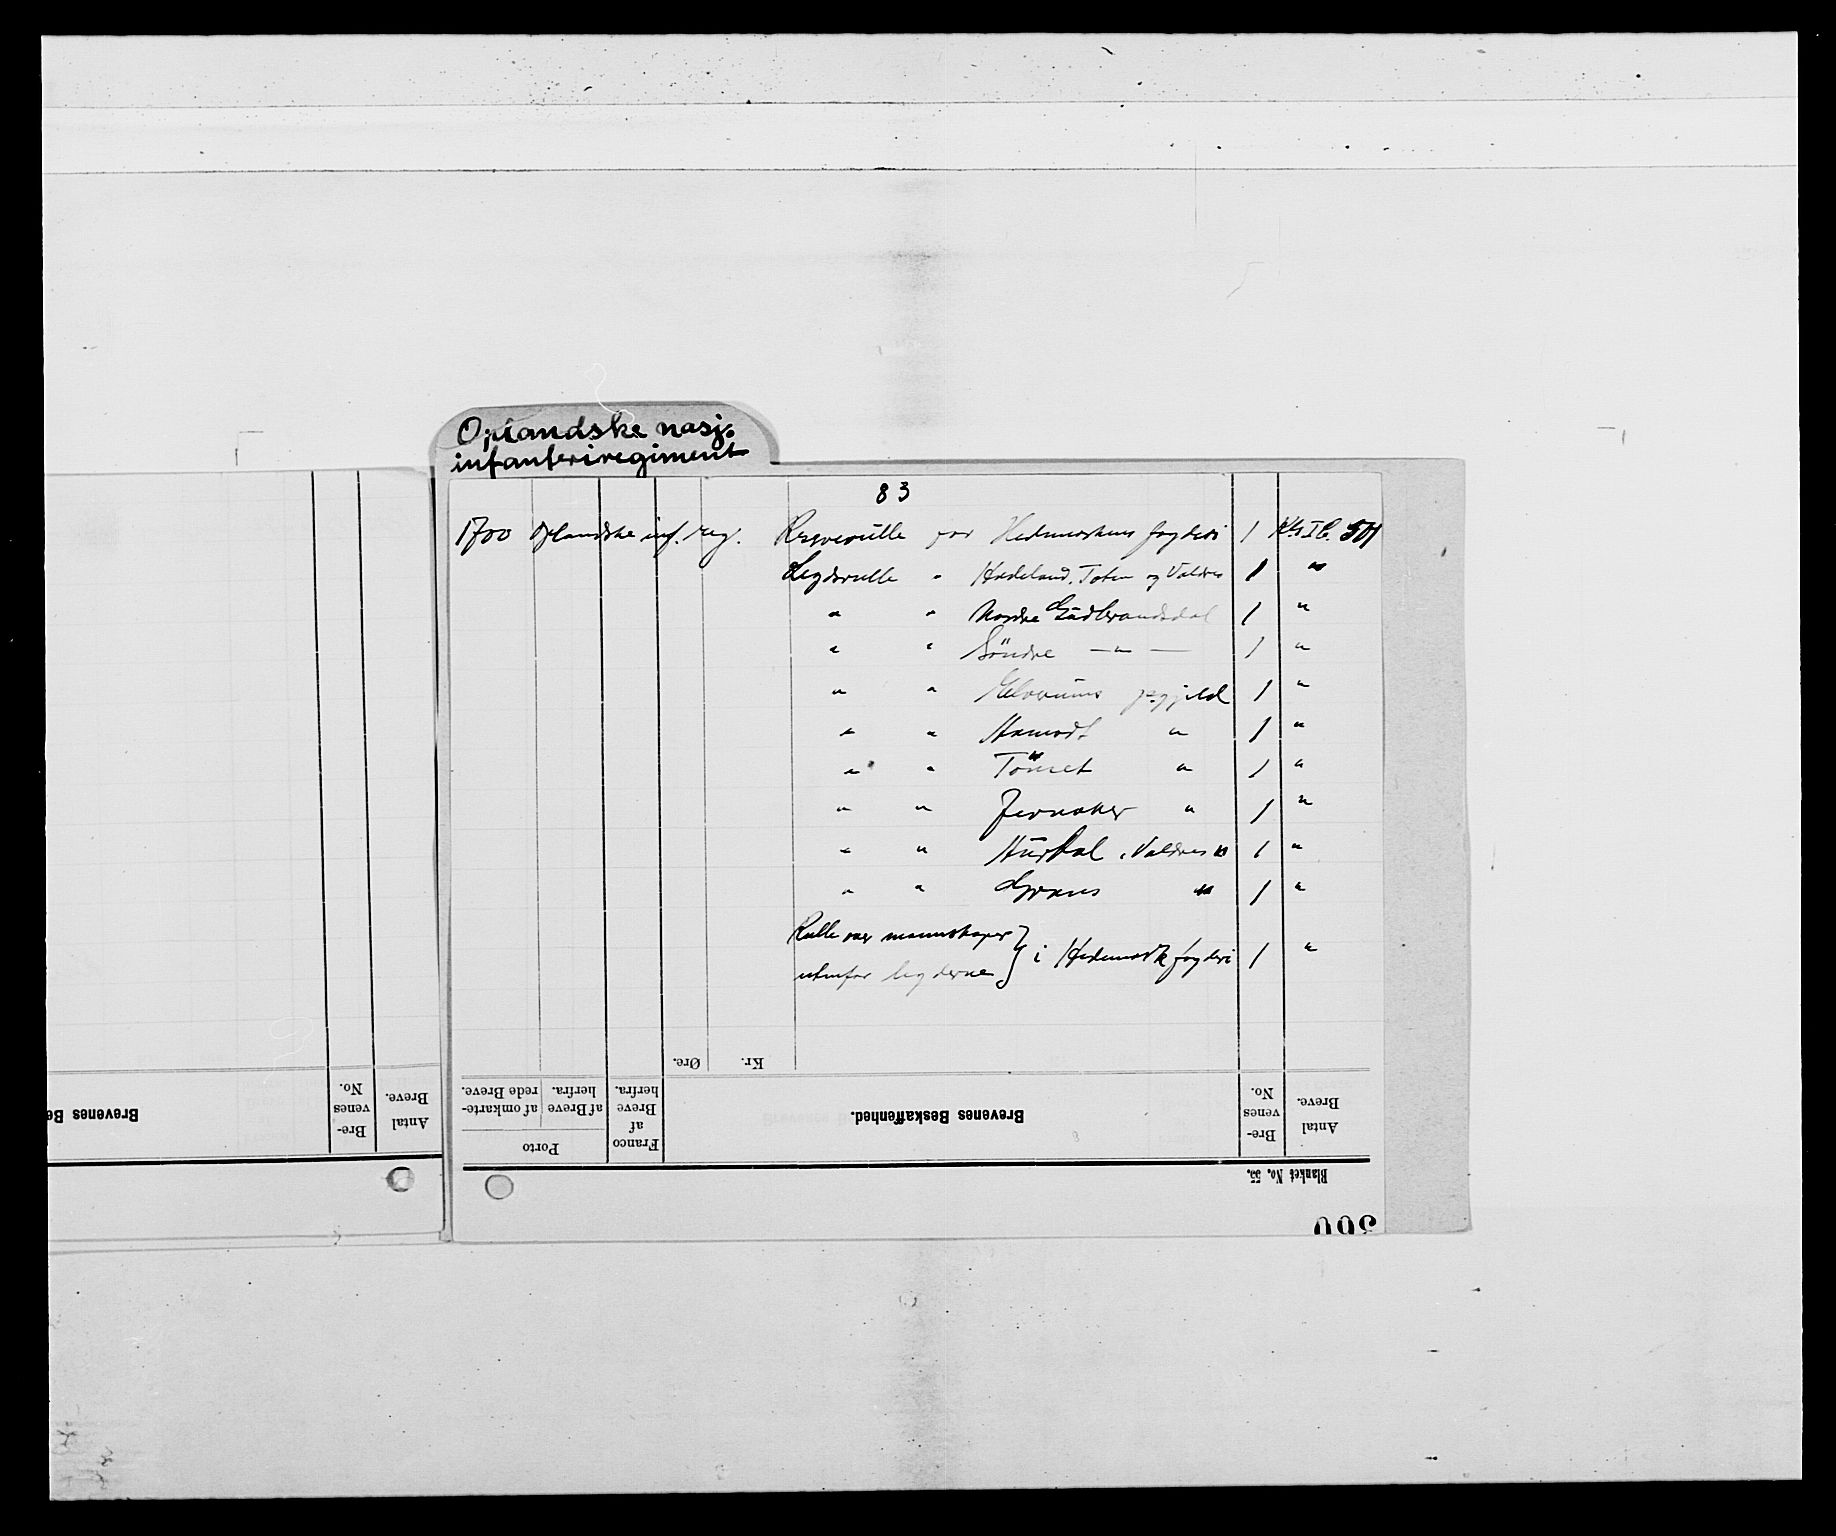 Oplandske nasj.
infanteriregiment
83
1700 Oplandske inf. reg. Reserverulle for Hedemarkens fogderi 1 501
Legdsrulle " Hadeland, Toten og Valdres 1 "
" " Nordre Gudbrandsdal 1 "
" " Söndre — " — 1 "
" " Elverums prgjeld 1 "
" " Aamodt " 1 "
" " Tönset " 1 "
" " Jevnaker " 1 "
" " Hurdal i Valdres " 1 "
" " Grans " 1 "
Rulle over mannskaper
utenfor legderne } i Hedemark fogderi 1 "
Kr. Øre.
Antal Breve.
Brevenes No.
Brevenes Beskaffenhed.
Franco af Breve herfra.
Porto
af Breve herfra.
af omkarterede Breve.
Blanket No. 55.
500
Antal Breve.
Brevenes No.
Brevenes Be